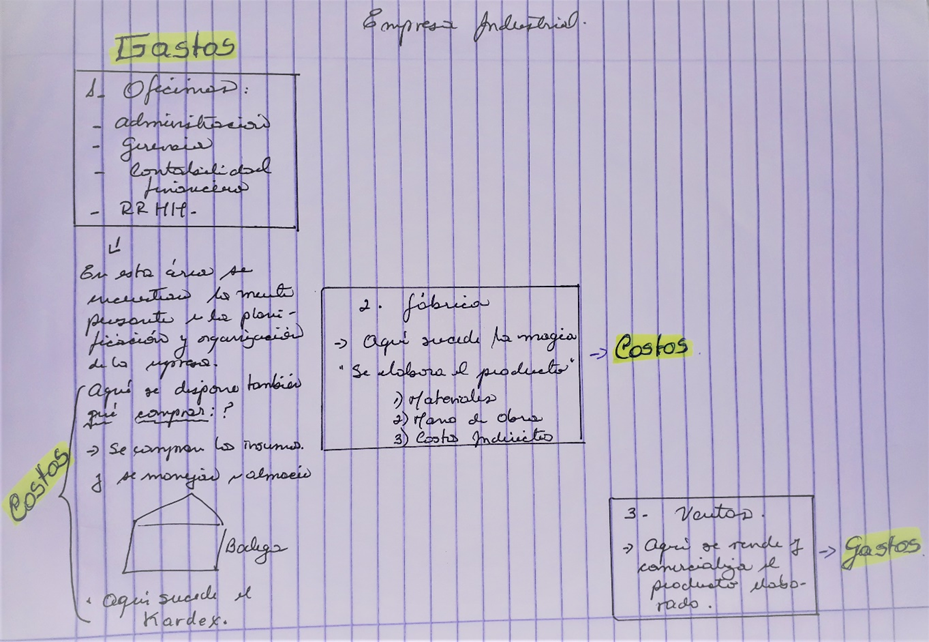 Empresa Industrial.
Gastos
1- Oficinas:
- administración
- Gerencia
- Contabilidad
financiera
- RRHH-
En esta área se
encuentran la mente
pensante e la plani-
ficación y organización
de la
Aquí se dispone también
qué comprar: ?
→ Se compran los insumos.
y se manejan almacén
Bodega
• Aquí sucede el
Kardex.
Costos
2. fábrica
→ Aquí sucede la magia
"Se elabora el producto"
1) Materiales
2) Mano de Obra
3) Costos Indirectos
→ Costos
3- Ventas.
→ Aquí se vende y
comercializa el
producto elabo-
rado.
→ Gastos